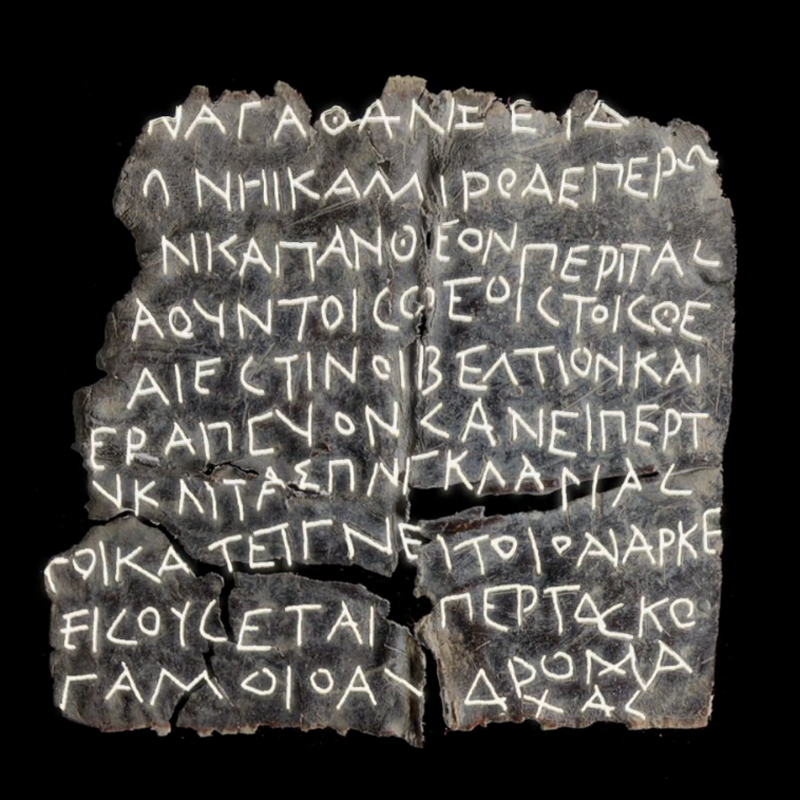 ΝΑΓΑΘΑΝΖΕΙΔ
ΛΝΗΙΚΑΜΙΡΘΑΕΠΕΡΩ
ΝΙΚΑΠΑΝΘΕΟΝΠΕΡΙΤΑΣ
ΑΘΥΝΤΟΙΣΘΕΟΙΣΤΟΙΣΘΕ
ΑΙΕΣΤΙΝΟΙΒΕΛΤΙΟΝΚΑΙ
ΕΡΑΠΕΥΟΝΣΑΝΕΙΠΕΡΤ
ΥΚΛΙΤΑΣΠΑΓΚΛΑΡΙΑΣ
ΓΟΙΚΑΤΕΙΓΝΕΙΤΟΙΟΑΙΑΡΚΕ
ΕΙΣΟΥΣΕΤΑΙΠΕΡΤΑΣΚΟ
ΓΑΜΟΙΟΑΝΔΡΟΜΑ
ΧΑΣ